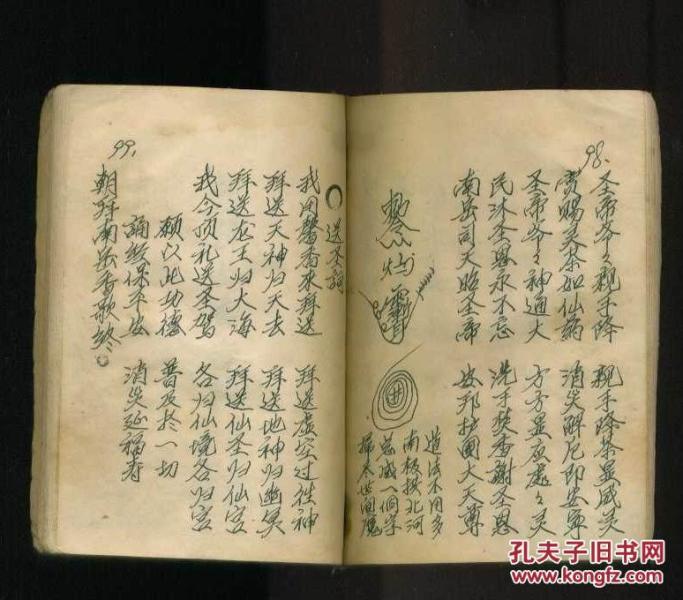 98.
圣帝爷々亲手降 亲手降茶显威灵
赏赐灵茶如仙药 消灾解厄即安宁
圣帝爷々神通大 方方显应处々灵
民沐圣恩永不忘 洗手焚香谢圣恩
南岳司天昭圣帝 安邦护国大天尊
道法不用多
南极投北河
总咸一個字
掃尽世间魔
99.
送圣词
我用馨香来拜送 拜送虚空过往神
拜送天神归天去 拜送地神归幽冥
拜送龙王归大海 拜送仙圣归仙宫
我今顶礼送圣驾 各归仙境各归宫
願以此功德 普及於一切
誦经保平安 消灾延福寿
朝拜南岳香歌终
孔夫子旧书网
www.kongfz.com